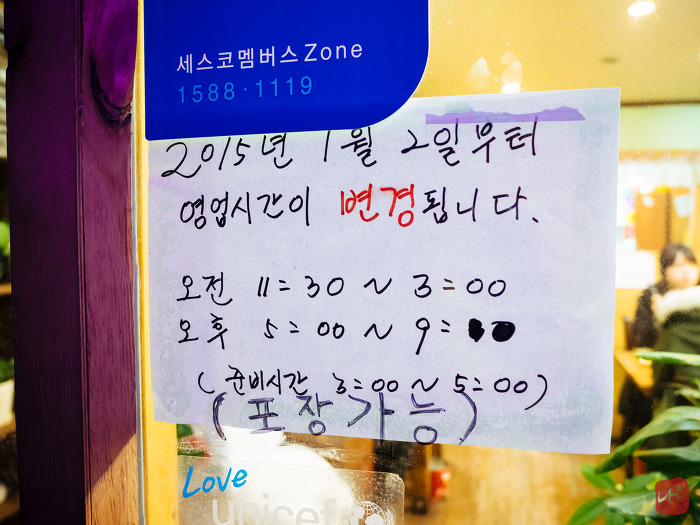 세스코멤버스 Zone
1588·1119
2015년 1월 2일부터
영업시간이 변경됩니다.
오전 11:30 ~ 3:00
오후 5:00 ~ 9:00
(준비시간 3:00 ~ 5:00)
(포장가능)
Love
unicef